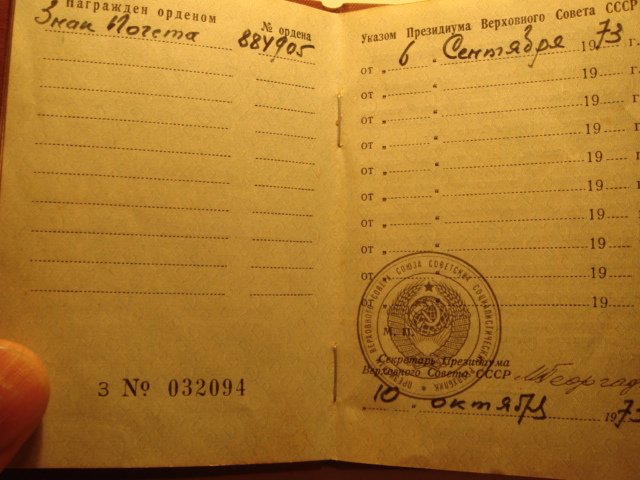 Награжден орденом
№ ордена
Знак Почета 884905
З № 032094
Указом Президиума Верховного Совета СССР
от " 6 " Сентября 1973 г.
от " " 19 г.
от " " 19 г.
от " " 19 г.
от " " 19 г.
от " " 19
от " " 19
от " " 19
от " " 19
от " " 19
М. П.
СОЮЗА СОВЕТСКИХ СОЦИАЛИСТИЧЕСКИХ
ПРЕЗИДИУМ ВЕРХОВНОГО СОВЕТА
Секретарь Президиума
Верховного Совета СССР
10 октября 1973